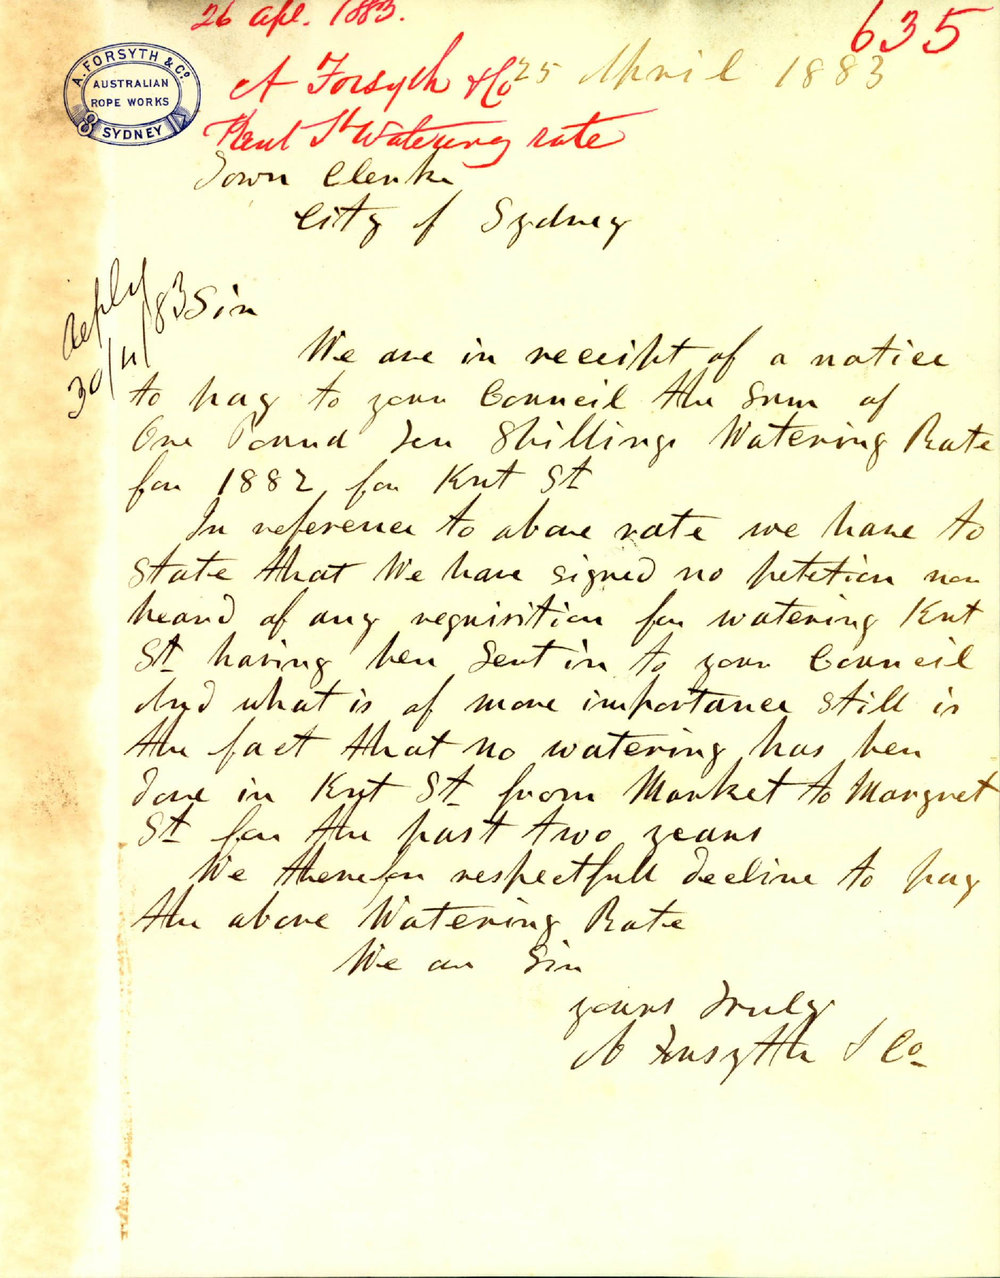 26 Apl. 1883.
635
A. FORSYTH & Co.
AUSTRALIAN
ROPE WORKS
SYDNEY
A Forsyth & Co
25 April 1883
Kent St Watering rate
Town Clerk
City of Sydney
Reply
30/4/83
Sir
We are in receipt of a notice
to pay to your Council the Sum of
One Pound Ten Shillings Watering Rate
for 1882 for Knt St
In reference to above rate we have to
State that We have signed no petetion nor
heard of any requisition for watering Knt
St having ben Sent in to your Council
And what is of more importance still is
the fact that no watering has ben
done in Knt St from Market to Margret
St for the past two years
We therefor respectfull decline to pay
the above Watering Rate
We are Sir
yours Truly
A Forsyth & Co